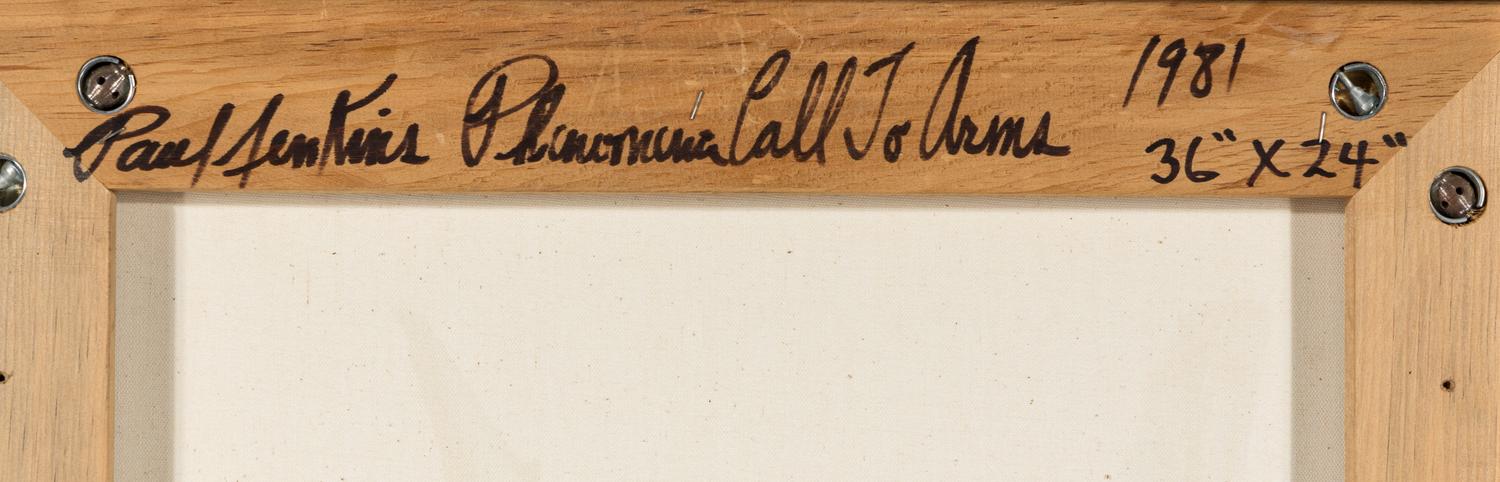 Paul Jenkins Phenomena Call To Arms 1981
36" X 24"